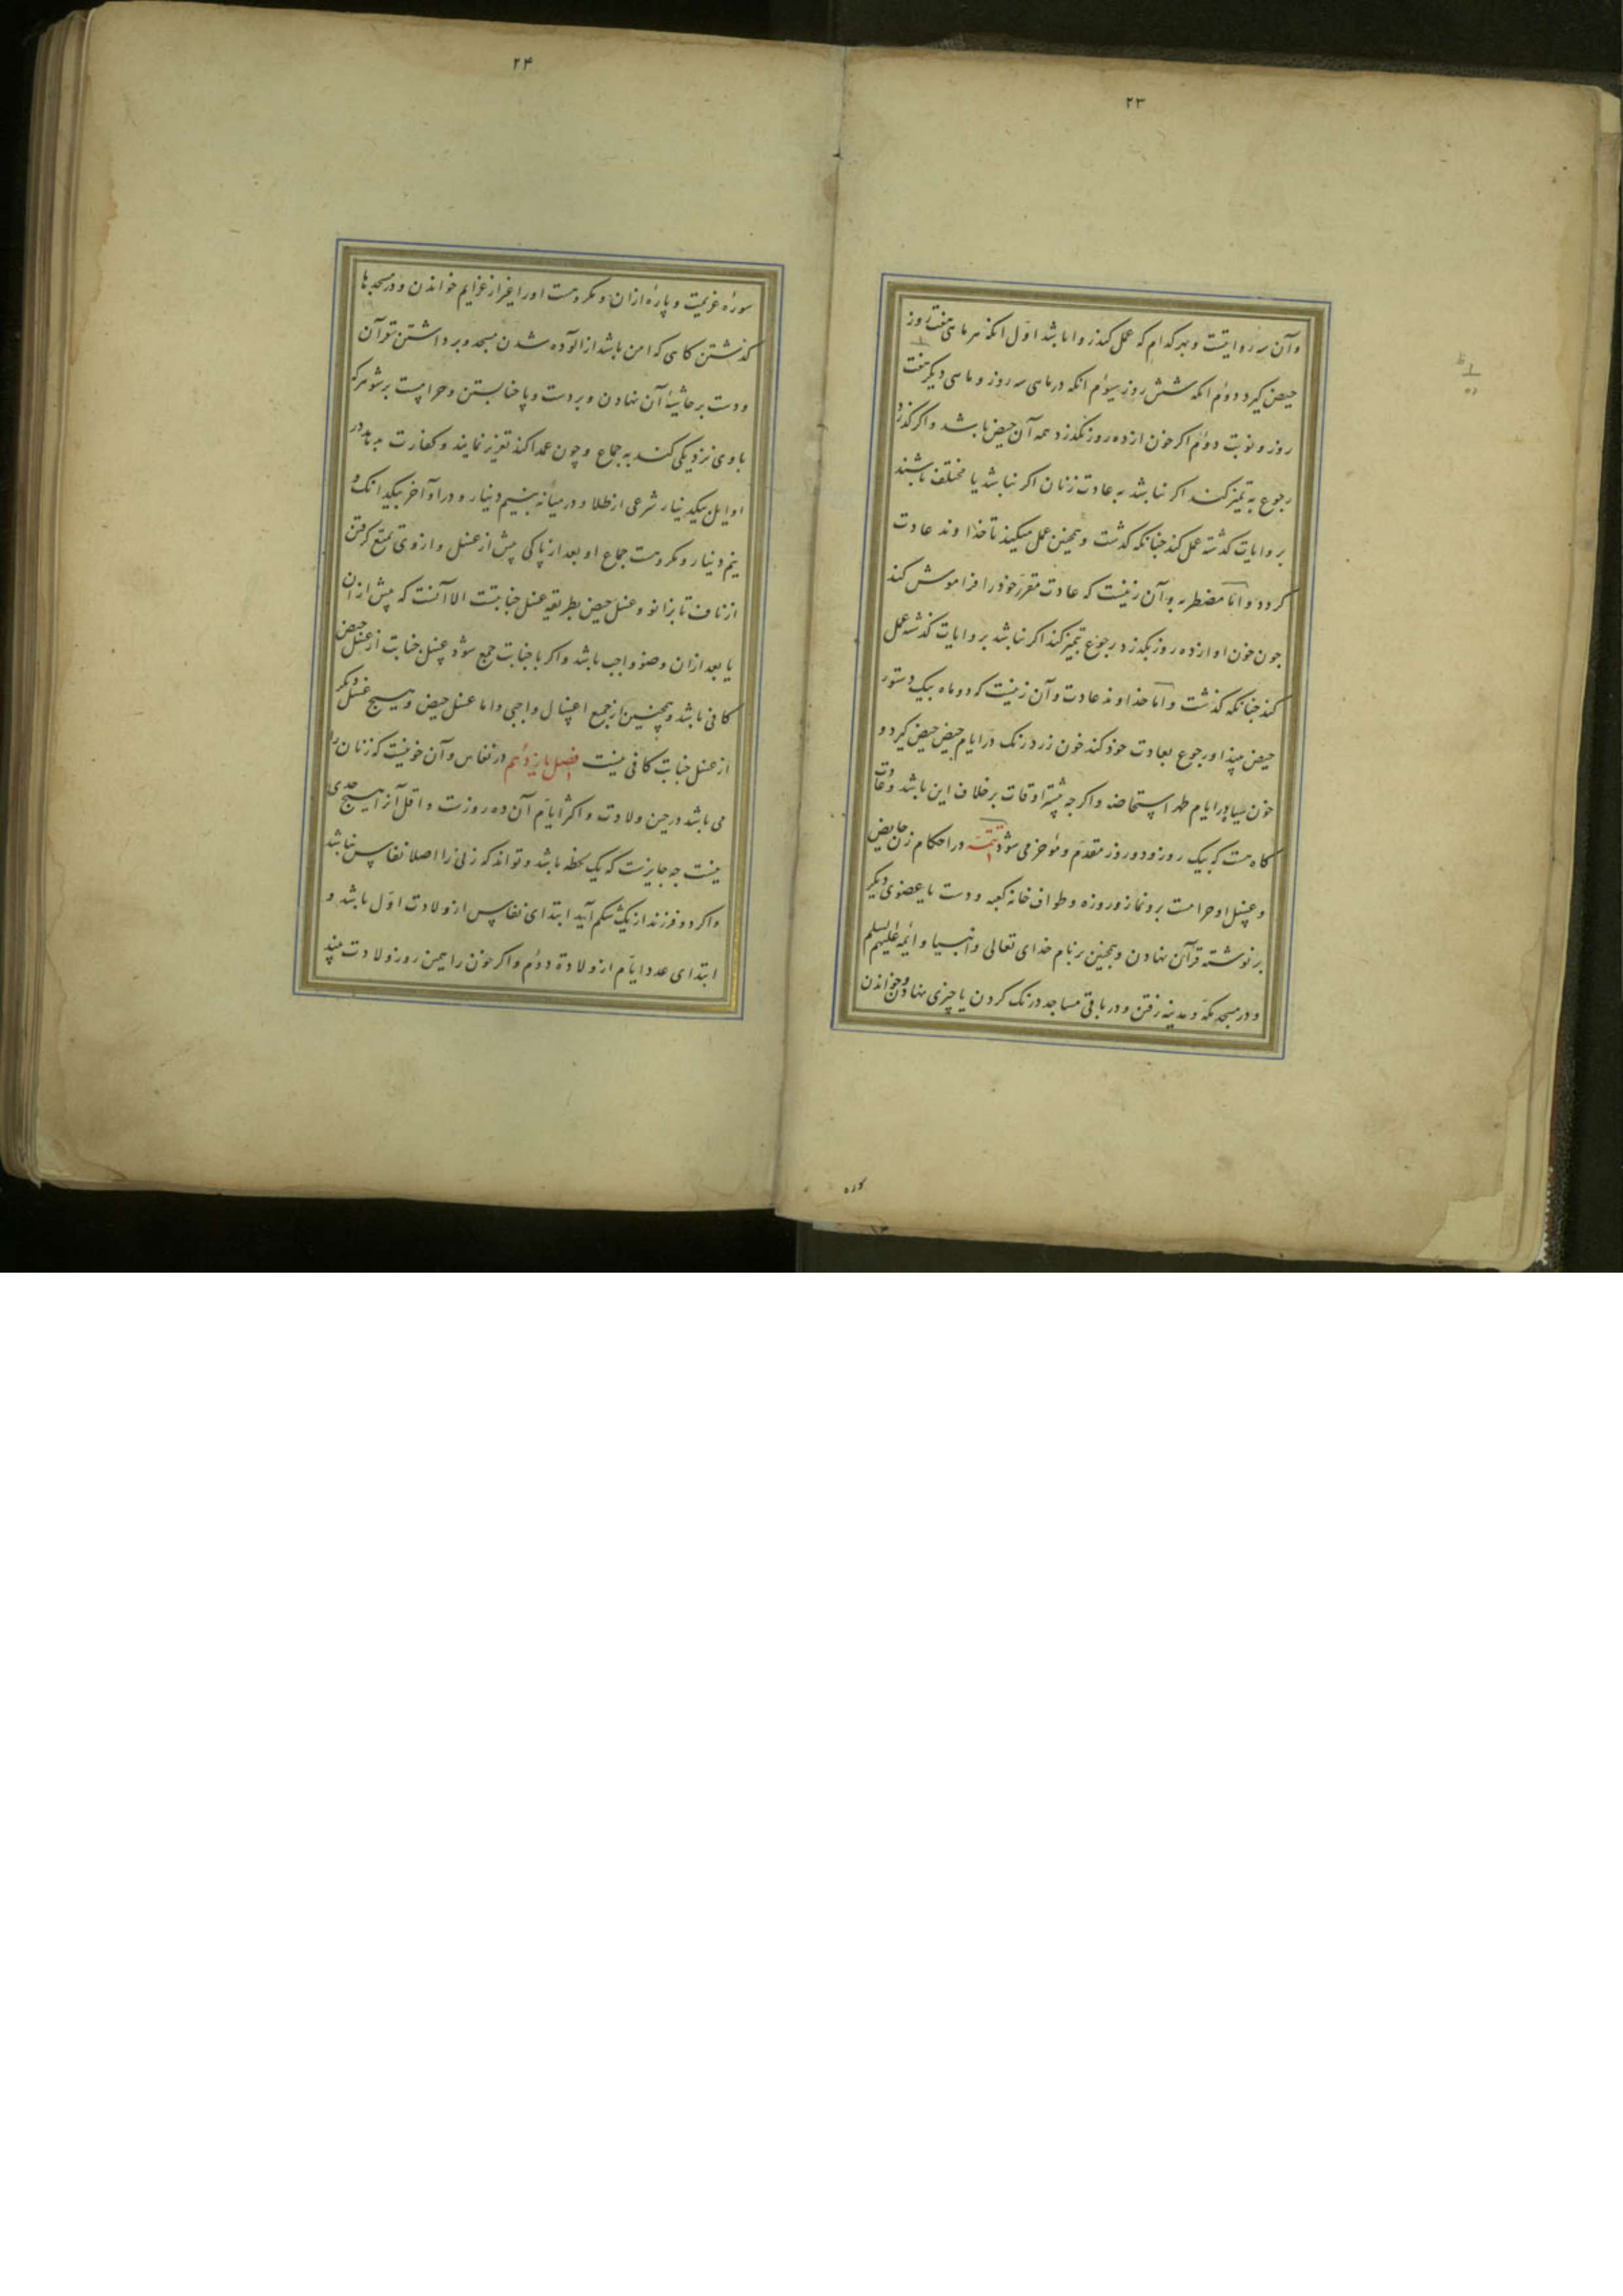 ۲۳
وآن سه روایتست وبهر کدام که عمل کند روا باشد اول انکه هر ماهی هفت روز
حیض گیرد دوم انکه شش روز سیوم انکه در ماهی سه روز و ماهی دیگر هفت
روز ونوبت دوم اکر خون ازده روز نکذرد همه آن حیض باشد واکر کذرد
رجوع به تمیز کند اکر نباشد به عادت زنان اکر نباشد یا مختلف باشند
بروایات کذشته عمل کند جنانکه کذشت وهمجنین عمل میکند تا خداوند عادت
کردد واما مضطربه وآن زنیست که عادت مقرر خود را فراموش کند
جون خون او ازده روز بکذرد رجوع بتمیز کند اکر نباشد بروایات کذشته عمل
کند جنانکه کذشت واما خداوند عادت وآن زنیست که دو ماه بیک دستور
حیض بیند او رجوع بعادت خود کند خون زرد رنک در ایام حیض حیض کیرد و
خون سیاه در ایام طهر استحاضه واکرجه بیشتر اوقات برخلاف این باشد وعادت
کاه هست که بیک روز ودو روز متقدم وموخر می شود تتمه در احکام زن حایض
وغسل او حرامست برو نماز وروزه وطواف خانه کعبه ودست یا عضوی دیکر
برنوشته قرآن نهادن وهمجنین برنام خدای تعالی وانبیا وائمه علیهم السلم
ودر مسجد مکه ومدینه رفتن ودر باقی مساجد درنک کردن یا چیزی نهادن وخواندن
۲۴
سوره عزیمت وپاره ازان ومکروهست اورا غیر از عزایم خواندن ودر مسجدها
کذشتن کاهی که امن باشد از آلوده شدن مسجد وبرداشتن قرآن
ودست برحاشیه آن نهادن وبردست وپا حنا بستن وحرامست برشوهر که
باوی نزدیکی کند به جماع وچون عمدا کند تعزیر نمایند وکفارت بدهد در
اوایل بیکدینار شرعی از طلا ودر میانه بنیم دینار ودر اواخر بیکدانک و
نیم دینار ومکروهست جماع او بعد از پاکی پیش از غسل وازوی تمتع کرفتن
از ناف تا بزانو وغسل حیض بطریقه غسل جنابتست الا آنست که پیش ازان
یا بعد ازان وضو واجب باشد واکر با جنابت جمع شود غسل جنابت از غسل حیض
کافی باشد وهمچنین از جمیع اغسال واجبی واما غسل حیض وهیچ غسل دیکر
از غسل جنابت کافی نیست فصل یازدهم در نفاس وآن خونیست که زنان را
می باشد در حین ولادت واکثر ایام آن ده روزست واقل آنرا هیچ حدی
نیست جه جایزست که یک لحظه باشد وتواند که زنی را اصلا نفاس نباشد
واکر دو فرزند از یک شکم آید ابتدای نفاس از ولادت اول باشد و
ابتدای عدد ایام از ولادة دوم واکر خون را همین روز ولادت بیند